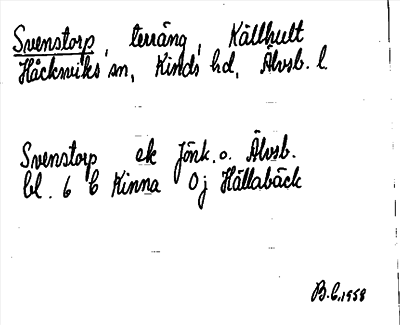 Svenstorp, terräng, Källhult
Håcksviks sn, Kinds hd, Älvsb. l.
Svenstorp ek Jönk. o. Älvsb.
bl. 6 C Kinna 0j Hållabäck
B.C. 1958